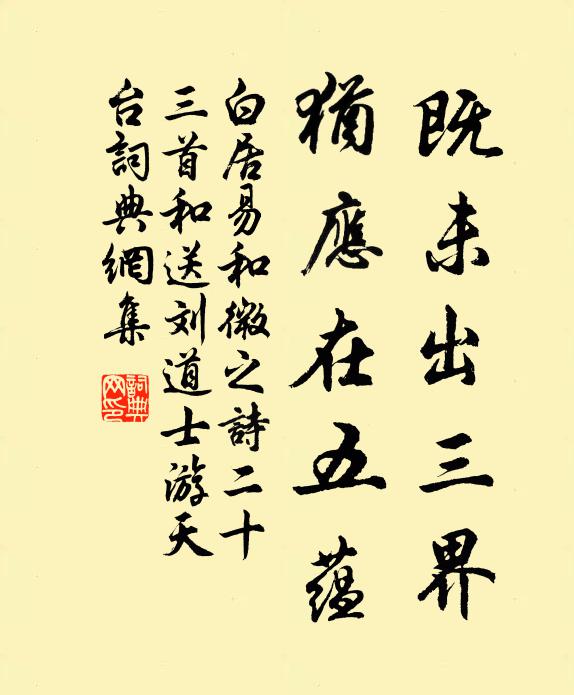 既未出三界
猶應在五蘊
白居易和微之詩二十
三首和送刘道士游天
台詞典網集
詞典
网印